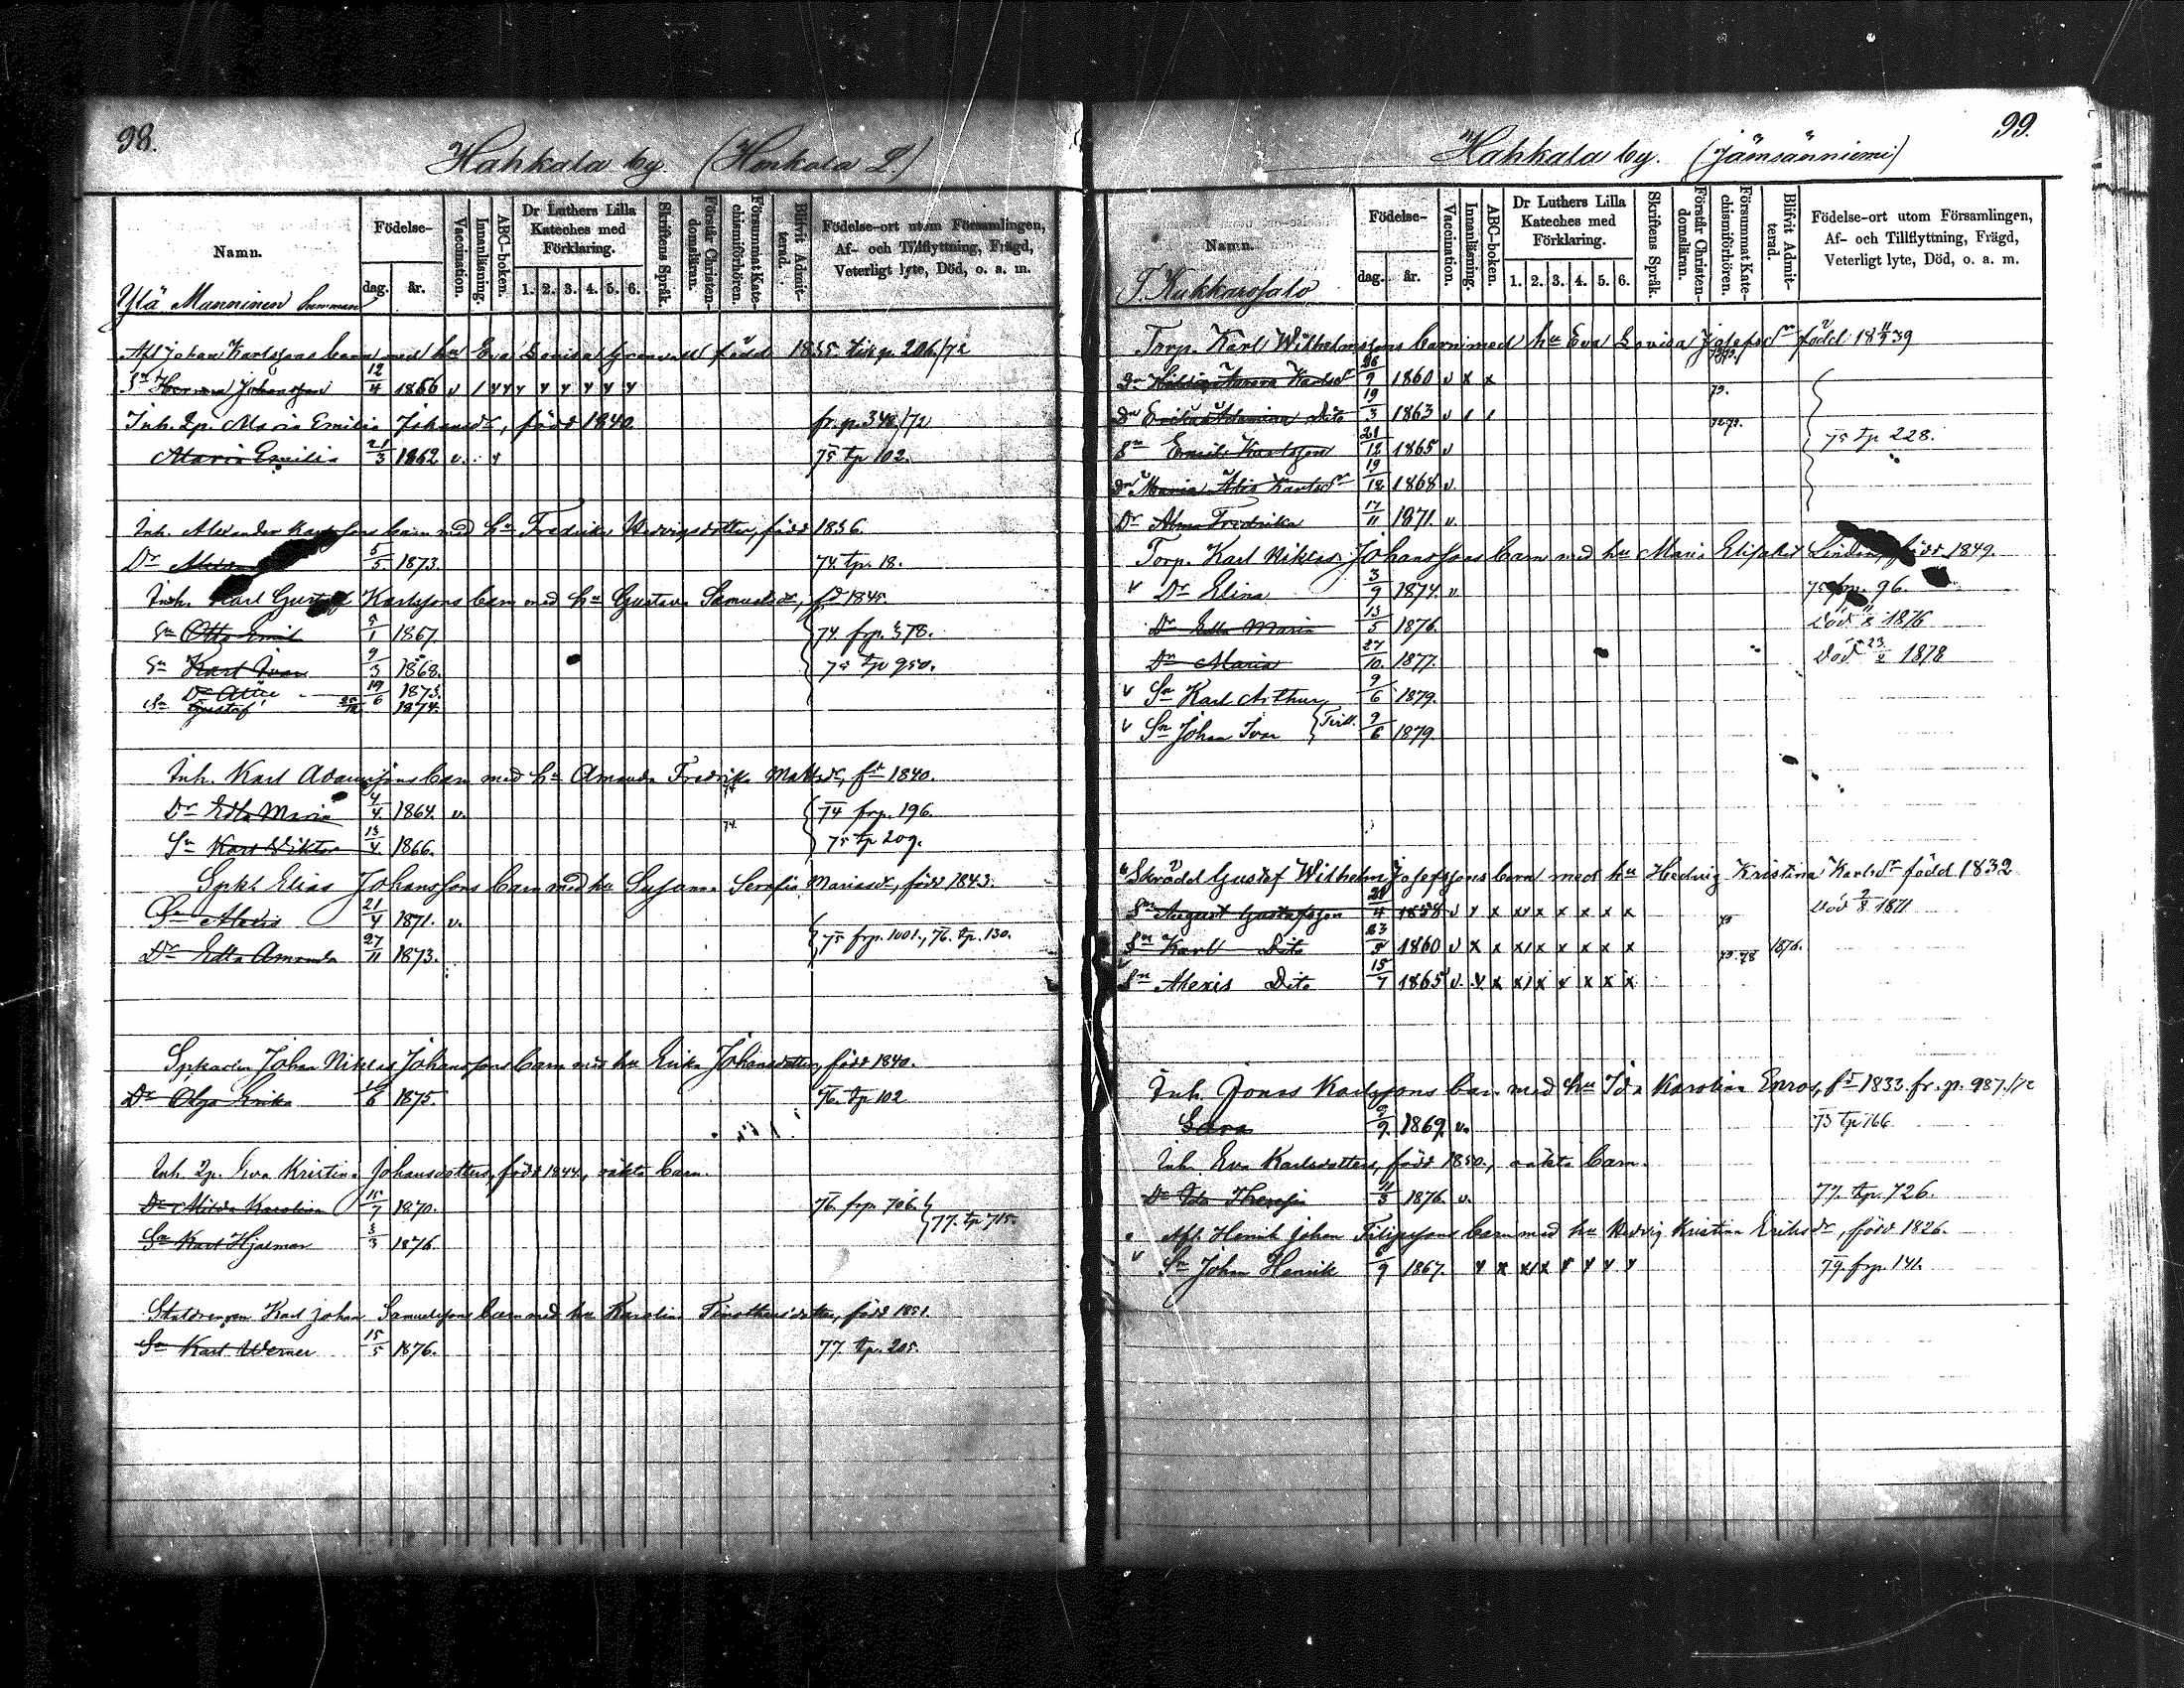 98.
Hahkala by. (Horkala L.)
Namn.
Födelse-
dag. år.
Vaccination.
Innanläsning.
ABC-boken.
Dr Luthers Lilla Kateches med Förklaring.
1. 2. 3. 4. 5. 6.
Skriftens Språk.
Förstår Christendomsläran.
Försummat Katechismiförhören.
Blifvit Admitterad.
Födelse-ort utom Församlingen, Af- och Tillflyttning, Frägd, Veterligt lyte, Död, o. a. m.
Ylä Munninen
Johan Karlssons barn med hu Eva Lovisa född 1835 p. 206/72
Sn Herman Johansson 12/4 1866 v
Inh. Qp. Maria Emilia Johansdr, född 1840. fr. p. 348/72
Maria Emilia 21/3 1862 v. 75 tp 102.
Inh. Alexander Karlssons barn med hu Fredrika Hedvigsdotter, född 1836.
Dr 5/5 1873. 74. tp. 18.
Inh. Karl Gustaf Karlssons barn med hu Gustava Samuelsdr, fd 1845.
Sn Otto Emil 5/1 1867. 74. frp. 578.
Sn Karl Ivar 9/3 1868. 75 tp 950.
Dr Alice 19/6 1873.
Sn Gustaf 1874.
Inh. Karl Adamssons barn med hu Amanda Fredrika Mattsdr, fd 1840.
Dr Edla Maria 4/4 1864. v. 74 frp. 196.
Sn Karl Viktor 13/4 1866. 74. 75 tp 209.
Spkl Elias Johanssons barn med hu Susanna Serafia Mariasdr, född 1843.
Sn Alexis 21/4 1871. v.
Dr Edla Amanda 27/11 1873. 75 frp. 1001., 76. tp. 130.
Spkarlen Johan Niklas Johanssons barn med hu Erika Johansdotter, född 1840.
Dr Olga Erika 6 1875. 76. tp 102
Inh. Qp. Eva Kristina Johansdotters, född 1844, oäkta barn.
Dr Milda Karolina 15/7 1870. 76. frp. 706. 77. tp 715.
Sn Karl Hjalmar 3/3 1876.
Staldrengen Karl Johan Samuelssons barn med hu Karolina Timotheusdotter, född 1851.
Sn Karl Werner 15/5 1876. 77. tp. 205.
99.
Hahkala by. (Jämsänniemi)
Namn.
Födelse-
dag. år.
Vaccination.
Innanläsning.
ABC-boken.
Dr Luthers Lilla Kateches med Förklaring.
1. 2. 3. 4. 5. 6.
Skriftens Språk.
Förstår Christendomsläran.
Försummat Katechismiförhören.
Blifvit Admitterad.
Födelse-ort utom Församlingen, Af- och Tillflyttning, Frägd, Veterligt lyte, Död, o. a. m.
T. Kukkarosalo
Torp. Karl Wilhelmssons barn med hu Eva Lovisa Josefsdr född 1839
Dr Karlsdr 26/9 1860 v x x
Dr Dito 19/3 1863 v 73.
Sn Emil Karlsson 21/12 1865 v 75 tp 228.
Dr Maria Karlsdr 19/12 1868 v.
Dr Alma Fredrika 17/11 1871. v.
Torp. Karl Niklas Johanssons barn med hu Maria Elisabet född 1849.
v Dr Elina 3/9 1874. v. 75 frp. 96.
Dr Edla Maria 13/5 1876. död 1876
Dr Maria 27/10 1877. död 23 1878
v Sn Karl Arthur 9/6 1879.
v Sn Johan Ivar Tvill. 9/6 1879.
Skrädd Gustaf Wilhelm Josefssons barn med hu Hedvig Kristina Karlsdr född 1832
Sn August Gustafsson 4 1858 v död 2/8 1871
Sn Karl Dito 1860 v 1876.
Sn Alexis Dito 15/7 1865 v.
Inh. Jonas Karlssons barn med hu Ida Karolina Enros, fd 1833. fr. p. 987./72
Sara 9 1869. v. 73 tp 166
Inh. Eva Karlsdotters, född 1850., oäkta barn.
Dr Ida Theresia 11/3 1876. v. 77. tp. 726.
Aft. Henrik Johan Filipssons barn med hu Hedvig Kristina Eriksdr, född 1826.
v Sn Johan Henrik 9 1867. 79. frp. 141.